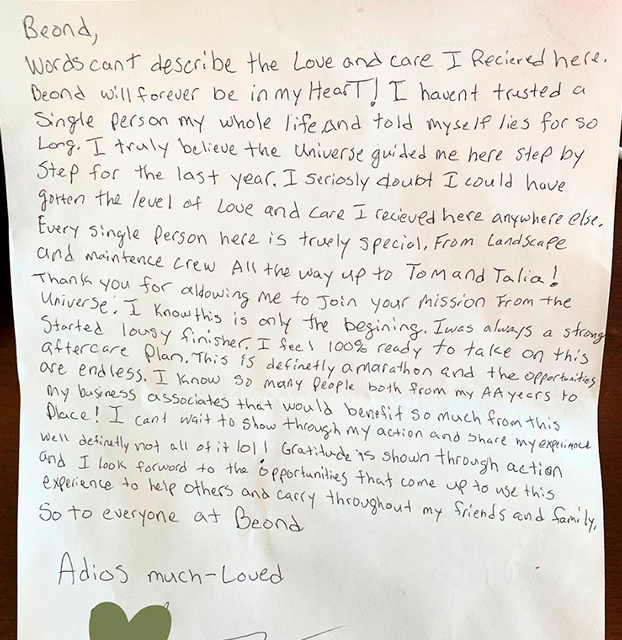 Beond,
Words cant describe the Love and care I Recieved here.
Beond will forever be in my HearT! I havent trusted a
Single Person my whole life and told myself lies for so
Long. I truly believe the Universe guided me here Step by
Step for the last year. I seriosly doubt I could have
gotten the level of Love and care I recieved here anywhere else.
Every single Person here is truely special. From Landscape
and maintence crew All the way up to Tom and Talia!
Thank you for allowing me to Join your Mission From the
Universe. I Know this is only the begining. I was always a strong
Started lousy finisher. I feel 100% ready to take on this
aftercare Plan. This is definetly a marathon and the opportunities
are endless. I Know so many People both from my AA years to
my business associates that would benefit so much from this
Place! I cant wait to show through my action and share my experience
well definetly not all of it lol! Gratitude is shown through action
and I look forward to the opportunities that come up to use this
experience to help others and carry throughout my friends and family.
So to everyone at Beond
Adios much-Loved